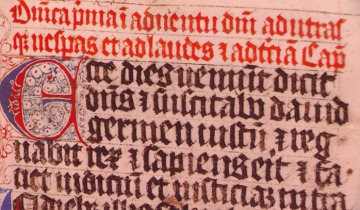 Dnica prima i adventu dni ad utras
q vespas et ad laudes z ad tciā Cap
Ecce dies veniūt dicit
dns z suscitabo david
germen iustū z reg
nabit rex z sapiens erit z fa
ciet iudiciū et iusticiaz in tra